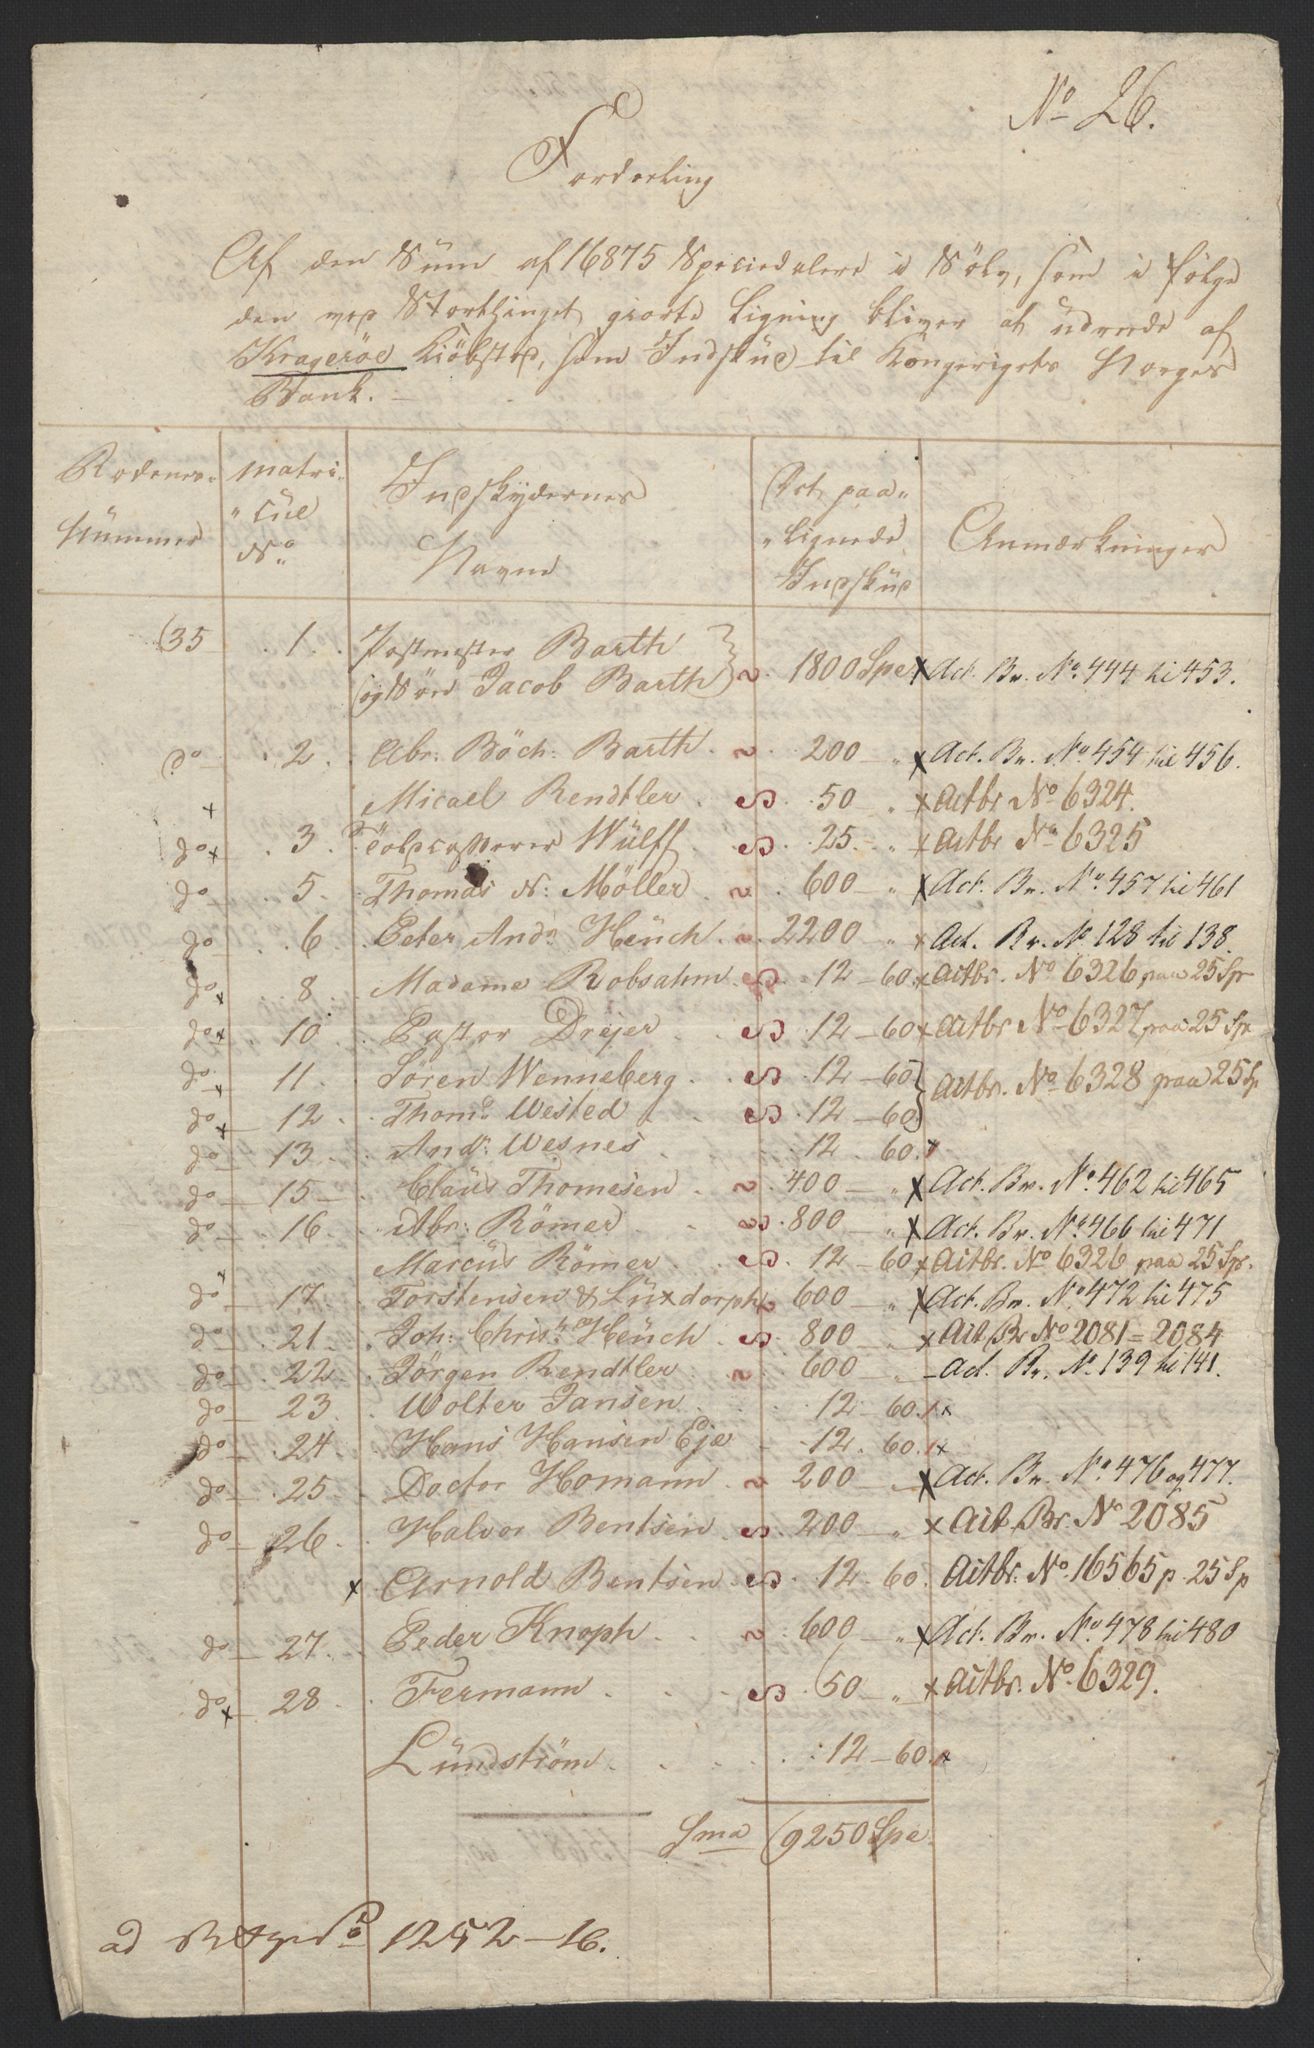 No 26.
Fordeeling
Af den Süm af 16875 Speciedalere i Sölv, som i fölge
den ved Storthinget giorte Ligning bliver at üdrede af
Krageröe Kiöbsted, som Indsküd til Kongerigets Norges
Bank. —
Rodenes Nümmer | Matri-cül No | Indskydernes Navne | Det paa-lignede Indsküd | Anmærkninger
35 1. Postmester Barth
og Sön Jacob Barth 1800 Spe x Act. Br. No 444 til 453.
do 2. Abr: Böch: Barth 200 x Act. Br. No 454 til 456.
x Micael Rendtler 50 x Actbr No 6324.
do x 3. Toldcasserer Wülff 25 x Actbr No 6325
do 5. Thomas N: Möller 600 x Act. Br. No 457 til 461
do 6. Peter Andr. Heüch 2200 x Act. Br. No 128 til 138.
do x 8 Madame Robsahm 12 — 60 x Actbr. No 6326 paa 25 Sp
do x 10 Pastor Dreyer 12 — 60 x Actbr No 6327 paa 25 Sp
do x 11. Sören Wenneberg 12 — 60 Actbr. No 6328 paa 25 Sp
do x 12. Thoms Wested 12 — 60
do 13. Andr: Wesnes 12 60. x
do 15 Claüs Thomesen 400 x Act. Br. No 462 til 465
do 16. Abr: Römer 800 x Act. Br. No 466 til 471
Marcüs Römer 12 — 60 x Actbr. No 6326 paa 25 Sp.
do 17. Torstensen & Lüxdorph 600 x Act. Br. No 472 til 475
do 21. Joh: Christ: Heüch 800 x Act Br No 2081 = 2084
do 22. Jörgen Rendtler 600 Act. Br. No 139 til 141.
do 23. Wolter Jansen 12 — 60. x
do 24. Hans Hansen Eje 12. 60. x
do 25. Doctor Homann 200 x Act. Br. No 476 og 477.
do 26. Halvor Bentsen 200 x Act. Br. No 2085
x Arnold Bentsen 12. 60. Actbr. No 16565 p. 25 Sp
do 27. Peder Knoph 600 x Act. Br. No 478 til 480
do x 28. Fermann 50 x Actbr. No 6329.
Lündström 12 — 60. x
Sma 9250 Spe.
ad 1252 — 16.